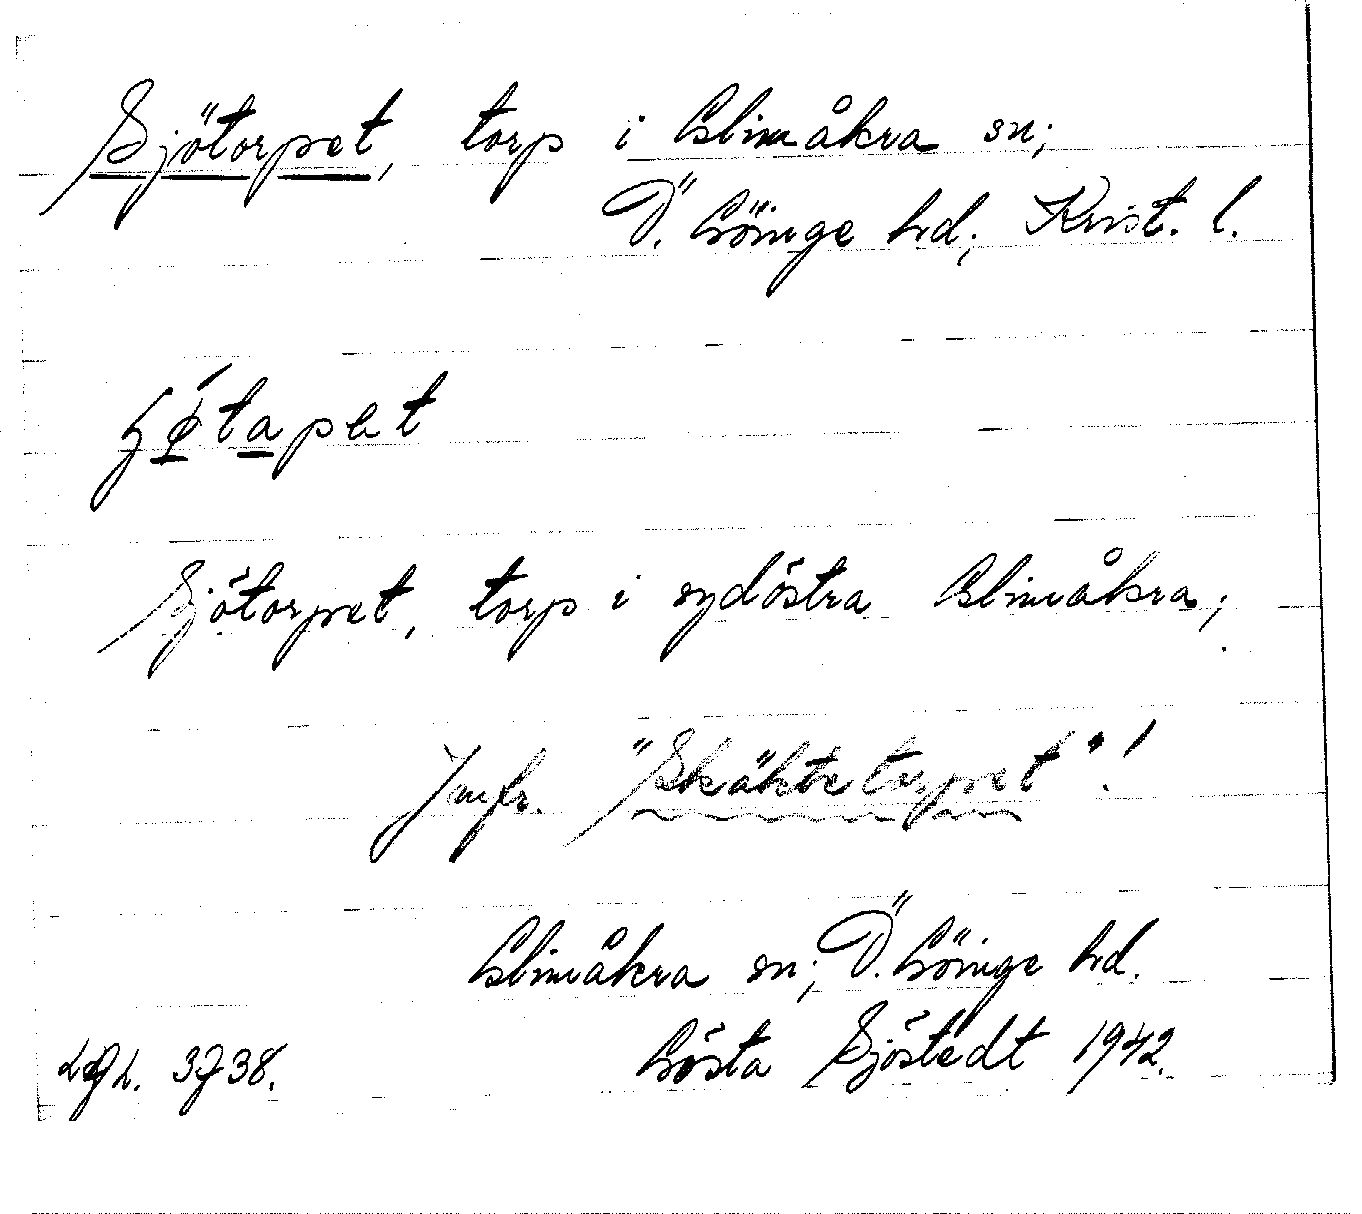 Sjötorpet, torp i Glimåkra sn;
Ö. Göinge hd, Krist. l.
Sjötorpet, torp i sydöstra Glimåkra;
Jmfr. "Skäktetorpet"!
Glimåkra sn; Ö. Göinge hd.
Gösta Sjöstedt 1942.
3738.